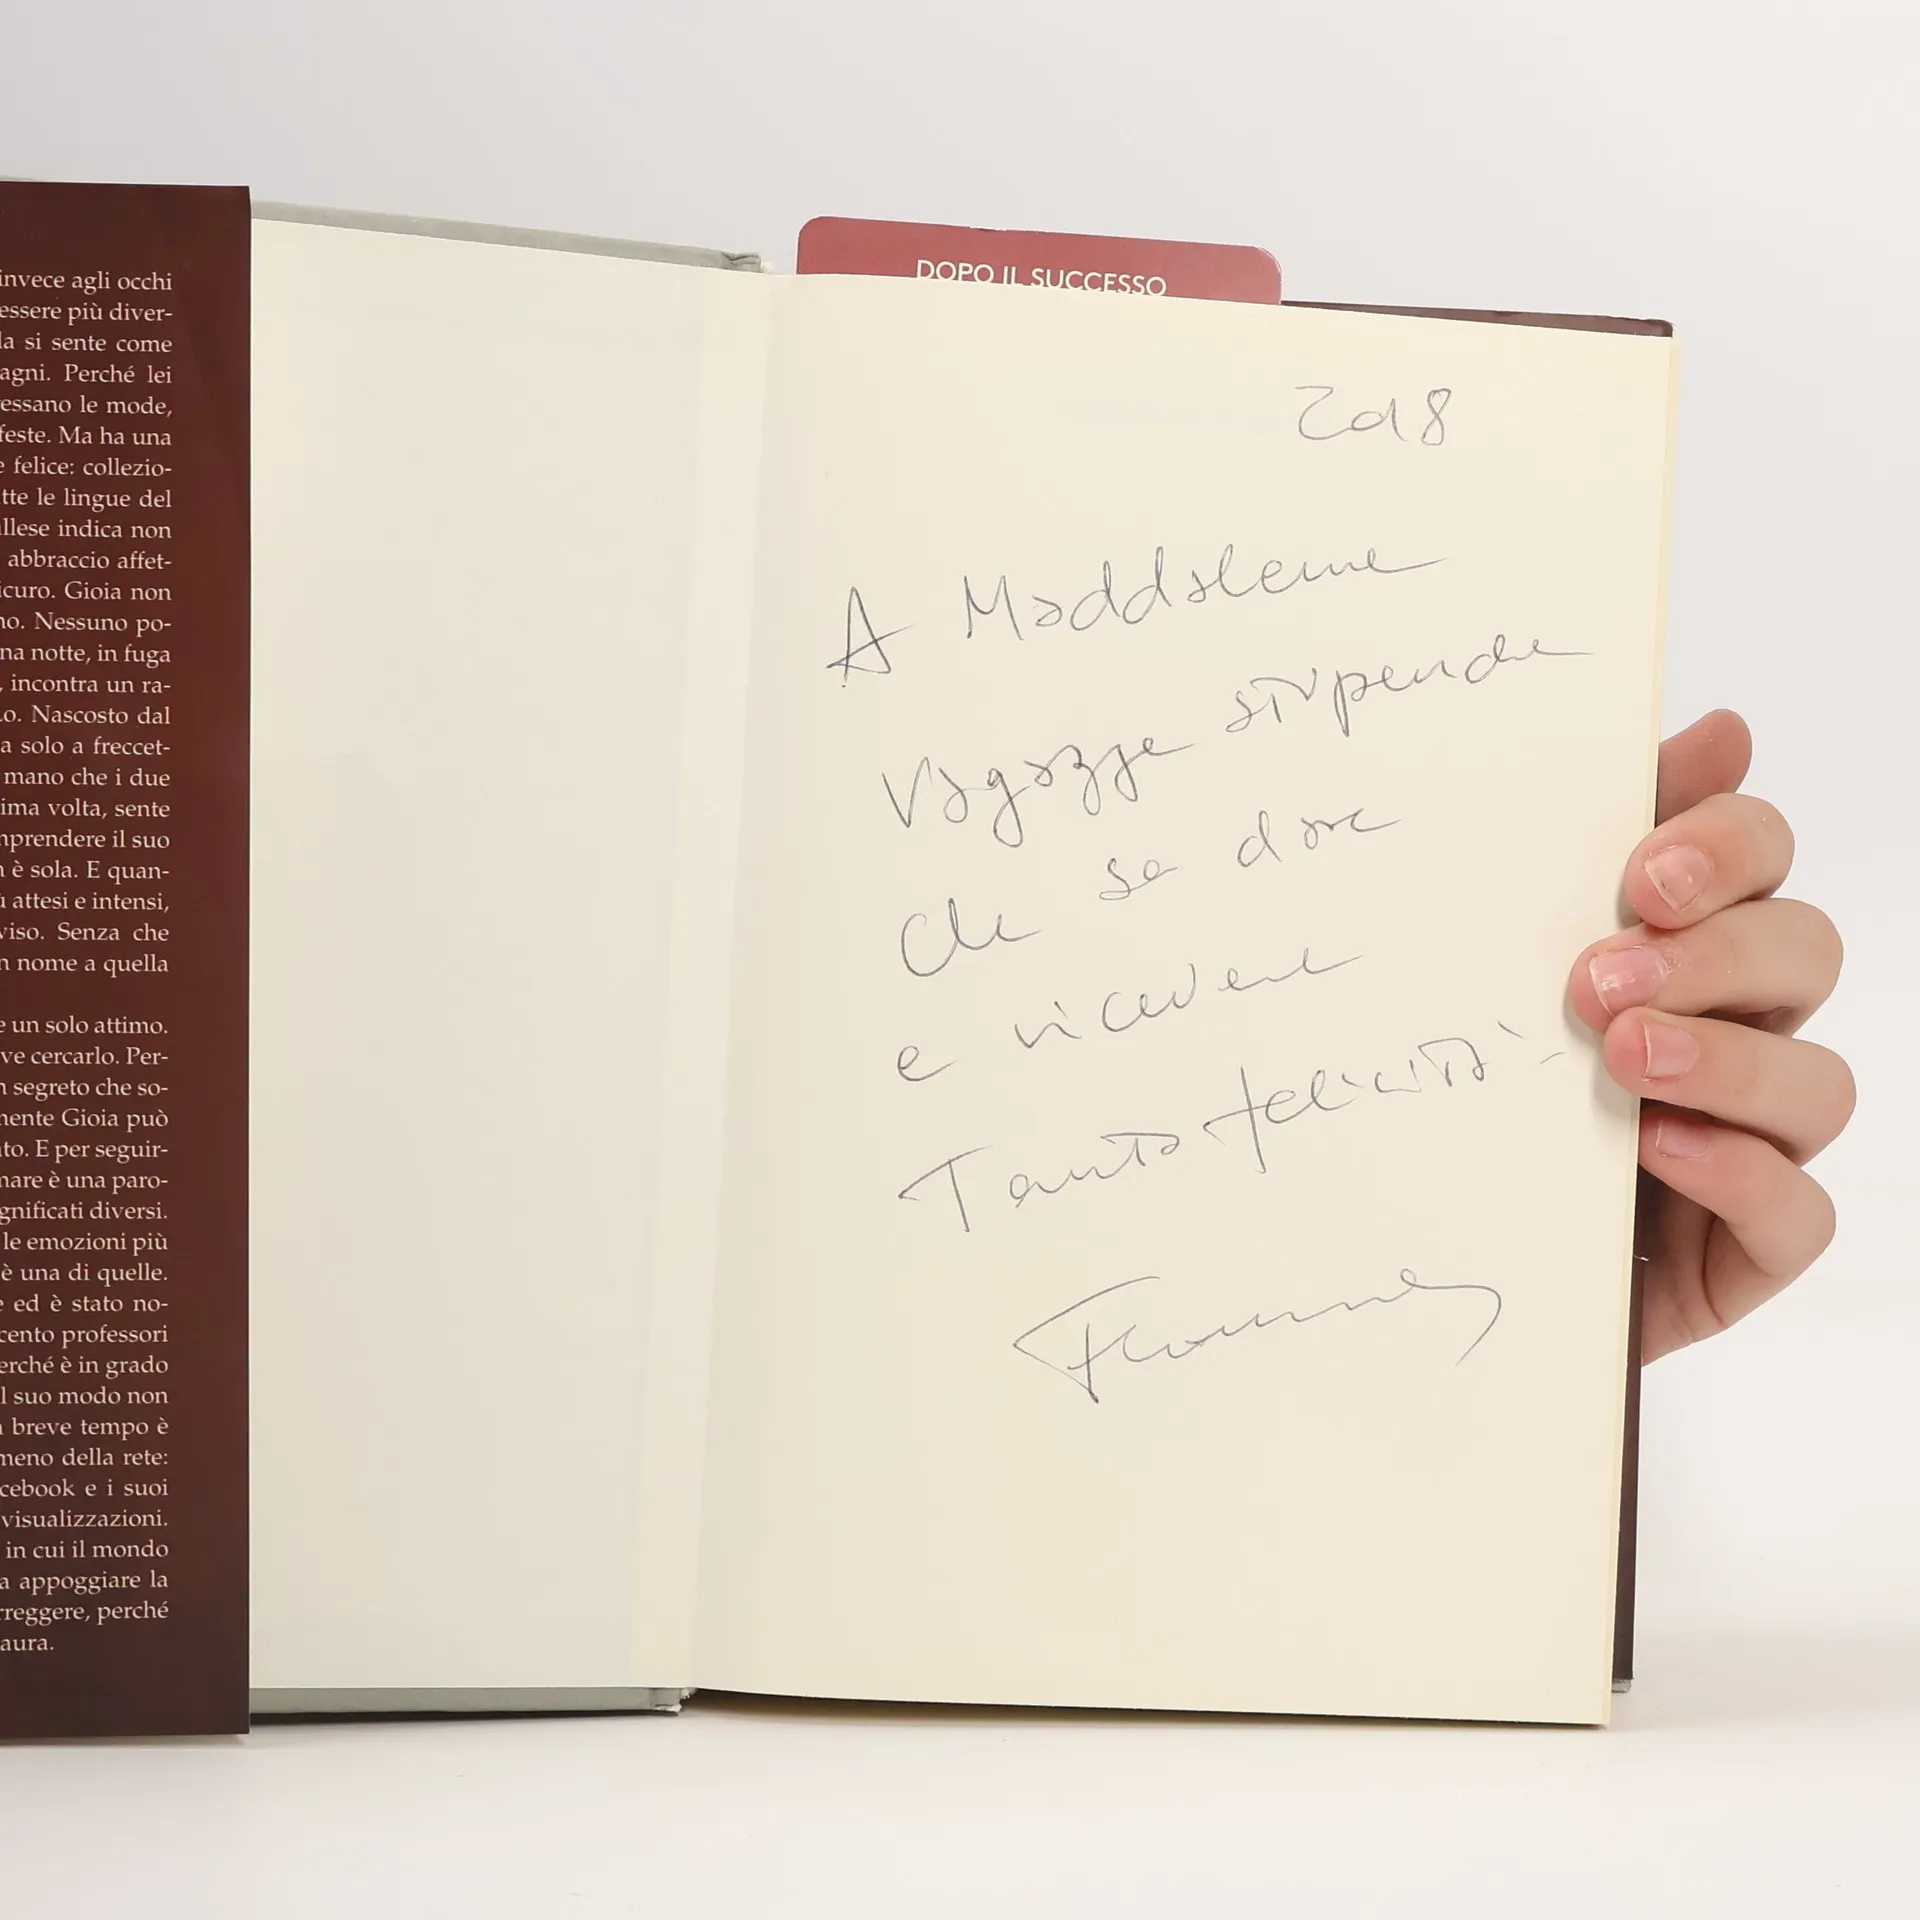 invece agli occhi
essere più diver-
la si sente come
agni. Perché lei
essano le mode,
feste. Ma ha una
e felice: collezio-
tte le lingue del
llese indica non
abbraccio affet-
icuro. Gioia non
no. Nessuno po-
na notte, in fuga
, incontra un ra-
Lo. Nascosto dal
a solo a freccet-
mano che i due
ima volta, sente
mprendere il suo
n è sola. E quan-
ù attesi e intensi,
viso. Senza che
n nome a quella
e un solo attimo.
ve cercarlo. Per-
n segreto che so-
mente Gioia può
to. E per seguir-
mare è una paro-
gnificati diversi.
le emozioni più
è una di quelle.
e ed è stato no-
cento professori
erché è in grado
l suo modo non
n breve tempo è
meno della rete:
cebook e i suoi
visualizzazioni.
in cui il mondo
a appoggiare la
rreggere, perché
aura.
DOPO IL SUCCESSO
2018
A Maddalena
ragazza stupenda
che sa dare
e ricevere
Tanta felicità